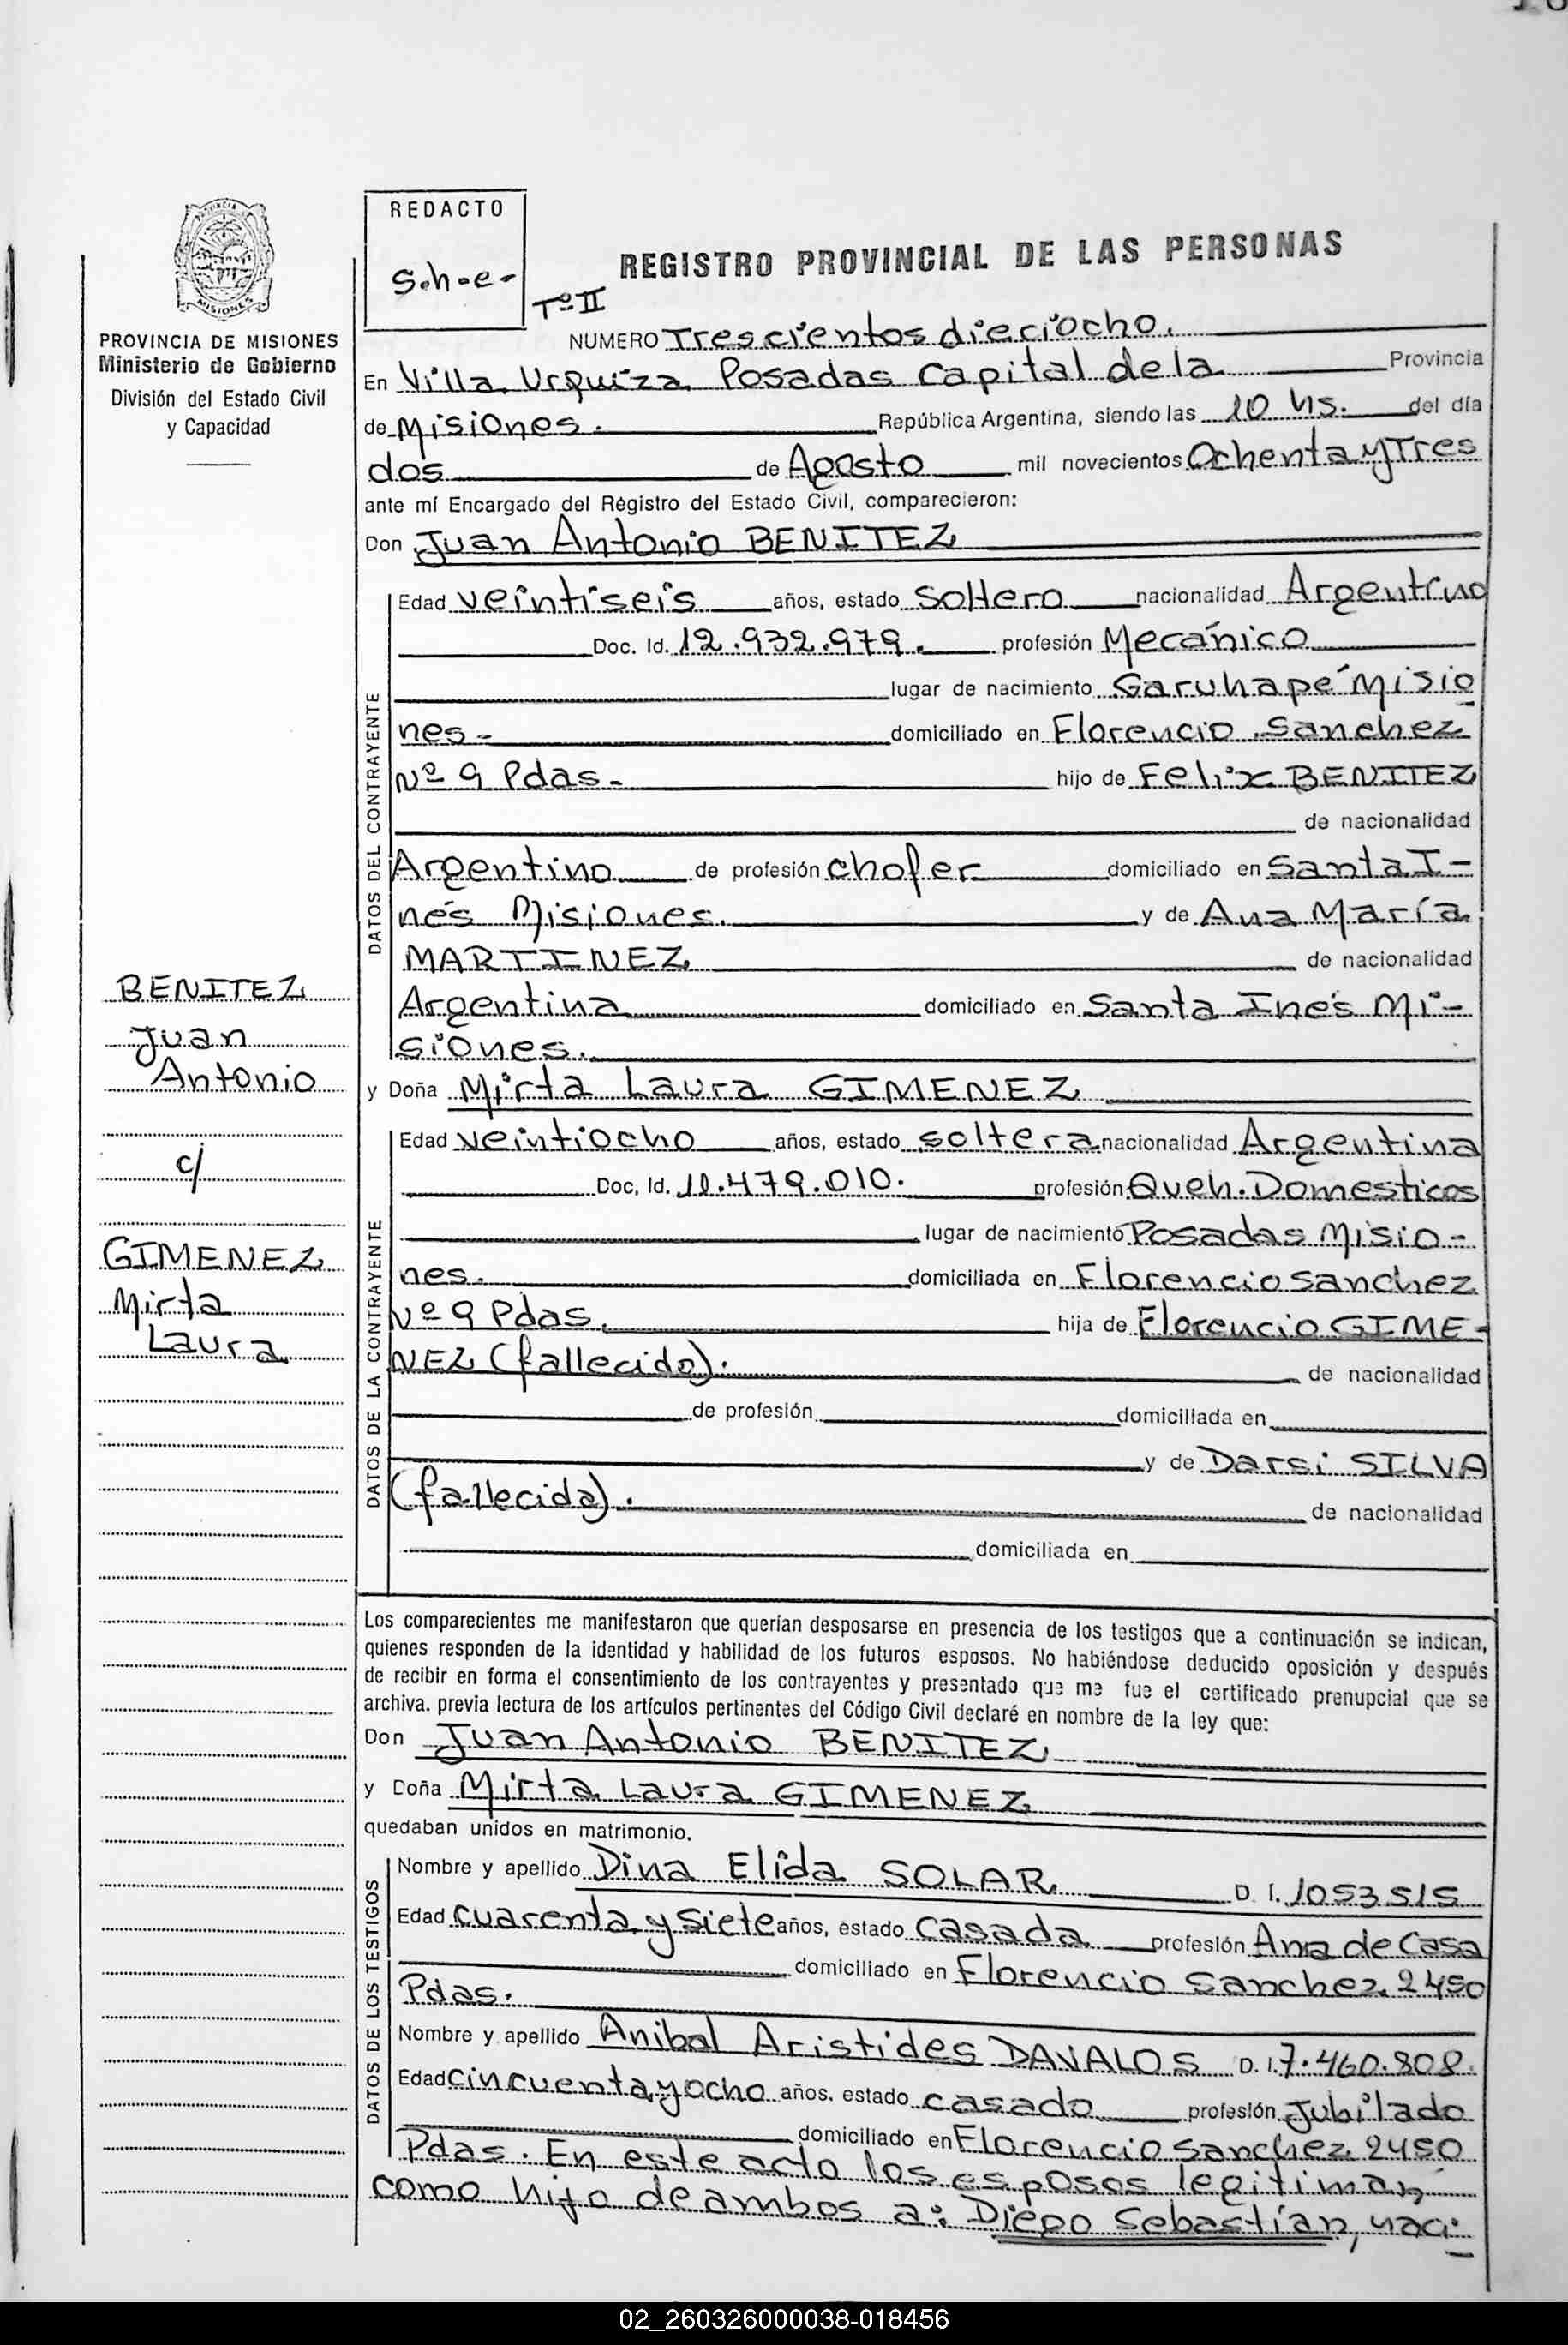 REDACTO
S.h-e-
Tº II
REGISTRO PROVINCIAL DE LAS PERSONAS
PROVINCIA DE MISIONES
Ministerio de Gobierno
División del Estado Civil
y Capacidad
NUMERO Trescientos dieciocho.
En Villa Urquiza Posadas Capital de la Provincia
de Misiones. República Argentina, siendo las 10 hs. del día
dos de Agosto mil novecientos Ochenta y Tres
ante mí Encargado del Registro del Estado Civil, comparecieron:
Don Juan Antonio BENITEZ
DATOS DEL CONTRAYENTE
Edad veintiseis años, estado Soltero nacionalidad Argentino
Doc. Id. 12.932.979. profesión Mecánico
lugar de nacimiento Garuhapé Misio
nes- domiciliado en Florencio Sanchez
Nº 9 Pdas- hijo de Felix BENITEZ
de nacionalidad
Argentino de profesión chofer domiciliado en Santa I-
nés Misiones. y de Ana María
MARTINEZ de nacionalidad
Argentina domiciliado en Santa Inés Mi-
siones.
BENITEZ
Juan
Antonio
c/
GIMENEZ
Mirta
Laura
y Doña Mirta Laura GIMENEZ
DATOS DE LA CONTRAYENTE
Edad veintiocho años, estado soltera nacionalidad Argentina
Doc, Id. 11.479.010. profesión Queh. Domesticos
lugar de nacimiento Posadas Misio-
nes. domiciliada en Florencio Sanchez
Nº 9 Pdas. hija de Florencio GIME-
NEZ (fallecido). de nacionalidad
de profesión domiciliada en
y de Darsi SILVA
(fallecida). de nacionalidad
domiciliada en
Los comparecientes me manifestaron que querían desposarse en presencia de los testigos que a continuación se indican,
quienes responden de la identidad y habilidad de los futuros esposos. No habiéndose deducido oposición y después
de recibir en forma el consentimiento de los contrayentes y presentado que me fue el certificado prenupcial que se
archiva. previa lectura de los artículos pertinentes del Código Civil declaré en nombre de la ley que:
Don Juan Antonio BENITEZ
y Doña Mirta Laura GIMENEZ
quedaban unidos en matrimonio.
DATOS DE LOS TESTIGOS
Nombre y apellido Dina Elida SOLAR D. I. 1053515
Edad cuarenta y siete años, estado casada profesión Ama de Casa
domiciliado en Florencio Sanchez 2450
Pdas.
Nombre y apellido Anibal Aristides DAVALOS D. I. 7.460.808.
Edad cincuenta y ocho años. estado casado profesión Jubilado
domiciliado en Florencio Sanchez 2450
Pdas. En este acto los esposos legitiman
como hijo de ambos a: Diego Sebastían, naci-
02_260326000038-018456